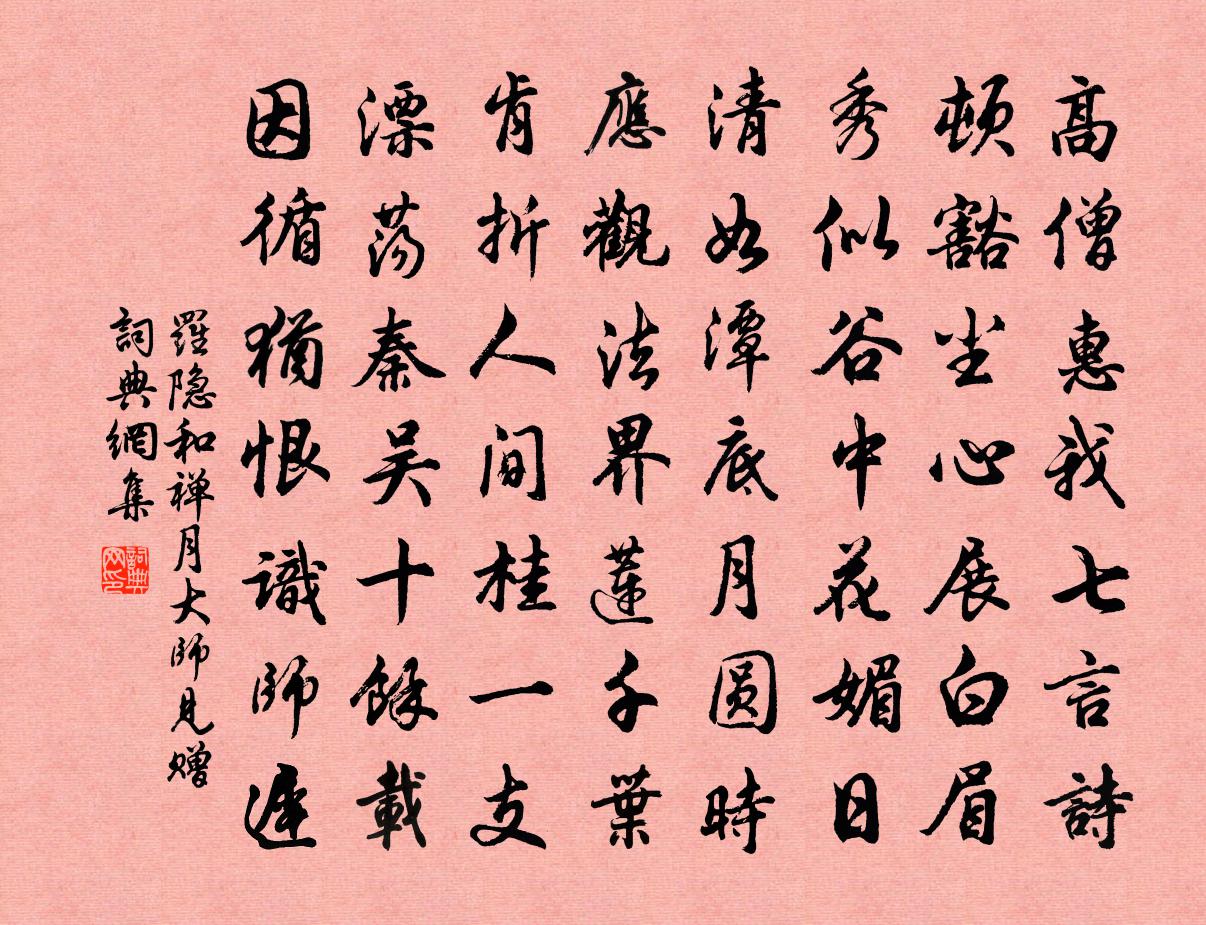 高僧惠我七言詩
頓豁尘心展白眉
秀似谷中花媚日
清如潭底月圓時
應觀法界蓮千葉
肯折人间桂一支
漂荡秦吴十餘載
因循猶恨識師遲
羅隐和禅月大師見赠
詞典網集
詞典网印